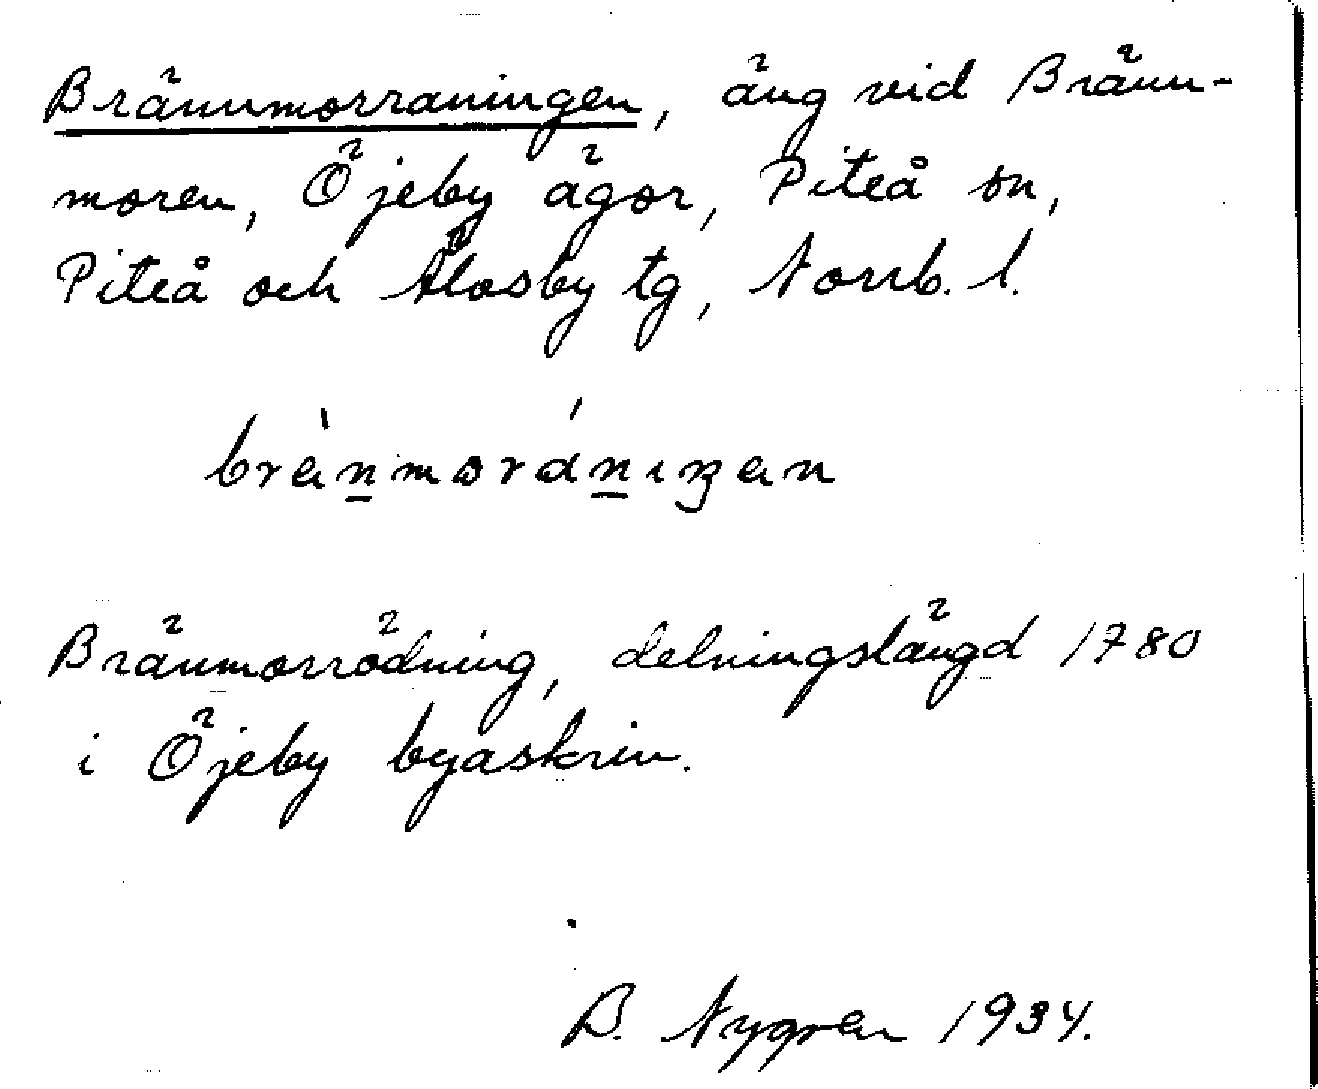 Brännmorraningen, äng vid Bränn-
moren, Öjeby ägor, Piteå sn,
Piteå och Älvsby tg, Norrb. l.
brä̀n̲morán̲ıŋen
Bränmorrödning, delningslängd 1780
i Öjeby byaskrin.
B. Nygren 1934.